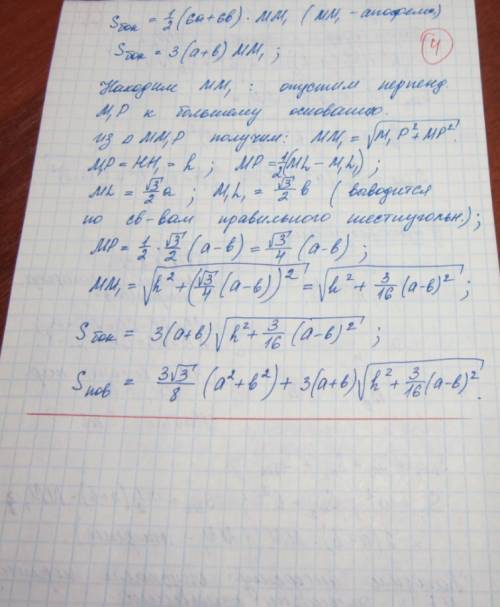 Sбок = 1/2 (6a+6b) · MM₁ (MM₁ - апофема)
4
Sбок = 3(a+b) MM₁ ;
Находим MM₁ : опустим перпенд
M₁P к большему основанию.
из △ MM₁P получим: MM₁ = √(M₁P² + MP²)
M₁P = HH₁ = h ; MP = 1/2 (ML - M₁L₁) ;
ML = √3/2 a ; M₁L₁ = √3/2 b ( выводится
по св-вам правильного шестиугольн.) ;
MP = 1/2 · √3/2 (a-b) = √3/4 (a-b) ;
MM₁ = √(h² + (√3/4 (a-b))²) = √(h² + 3/16 (a-b)²) ;
Sбок = 3(a+b) √(h² + 3/16 (a-b)²) ;
Sпов = 3√3/8 (a² + b²) + 3(a+b) √(h² + 3/16 (a-b)²) .